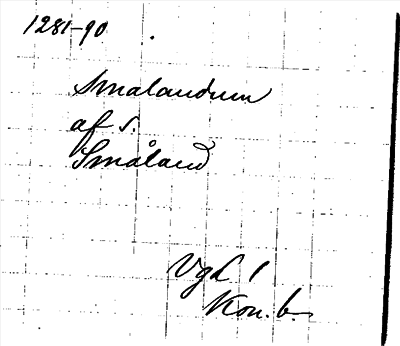 1281-90
Smalandum
af s.
Småland
VgL 1
Kon. b.